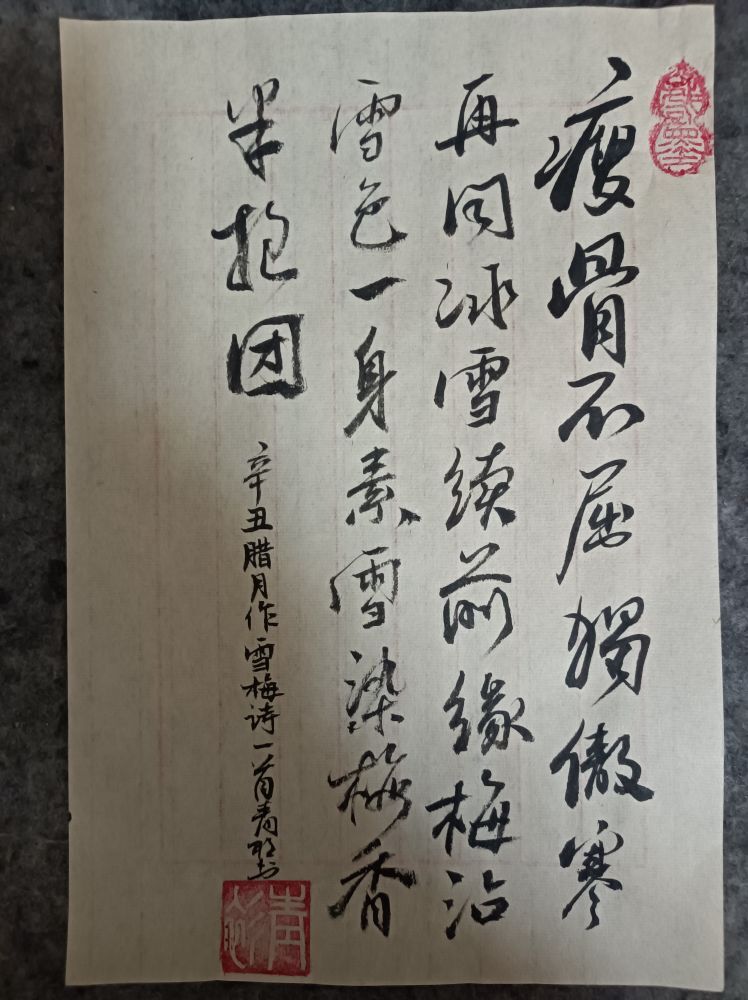 瘦骨不屈獨傲寒
再同冰雪續前緣梅沾
雪色一身素雪染梅香
半抱团
辛丑腊月作雪梅诗一首青